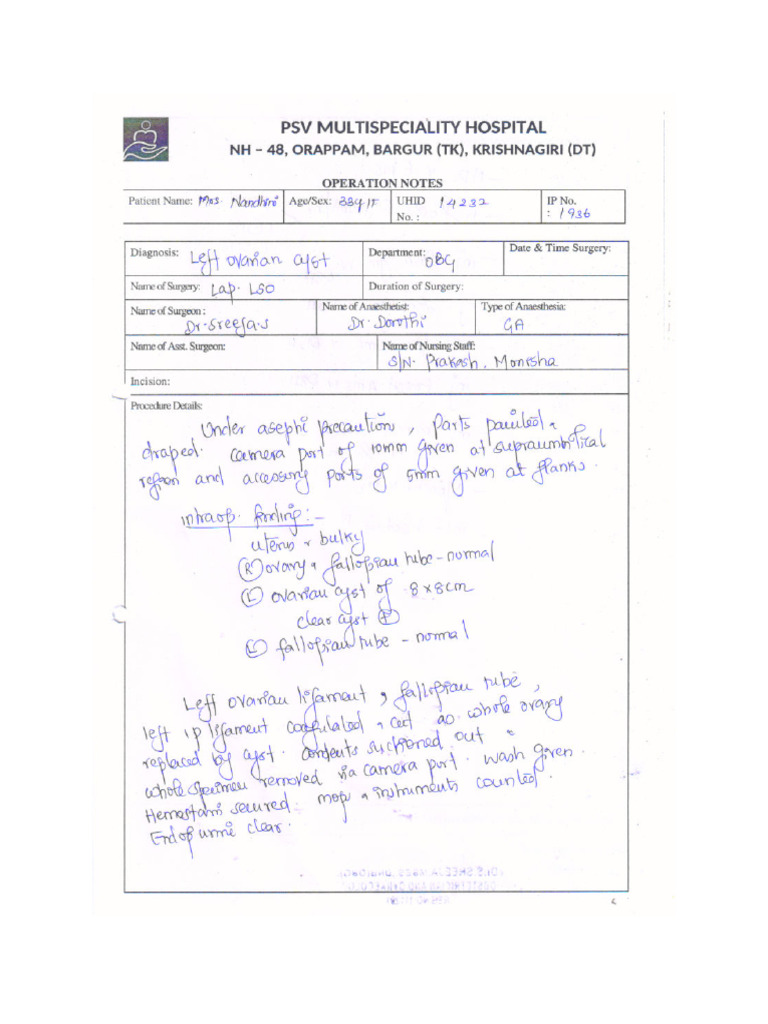 PSV MULTISPECIALITY HOSPITAL
NH – 48, ORAPPAM, BARGUR (TK), KRISHNAGIRI (DT)
OPERATION NOTES
Patient Name: Mrs. Nandhini Age/Sex: 33y/F UHID No. : 14232 IP No. : 1936
Diagnosis: Left ovarian cyst Department: OBG Date & Time Surgery:
Name of Surgery: Lap. LSO Duration of Surgery:
Name of Surgeon : Dr. Sreeja.S Name of Anaesthetist: Dr. Dorothi Type of Anaesthesia: GA
Name of Asst. Surgeon: Name of Nursing Staff: S/N. Prakash, Monisha
Incision:
Procedure Details:
Under asephi precaution, parts painted &
draped. Camera port of 10mm given at supraumbilical
region and accessory ports of 5mm given at flanks.
intraop. finding :-
uterus & bulky
(R) ovary & fallopian tube - normal
(L) ovarian cyst of 8x8cm
clear cyst (+)
(L) fallopian tube - normal
Left ovarian ligament, fallopian tube,
left ip ligament coagulated & cut as whole ovary
replaced by cyst. contents suctioned out &
whole specimen removed via camera port. wash given.
Hemostasis secured. mop & instruments counted.
End of urine clear.